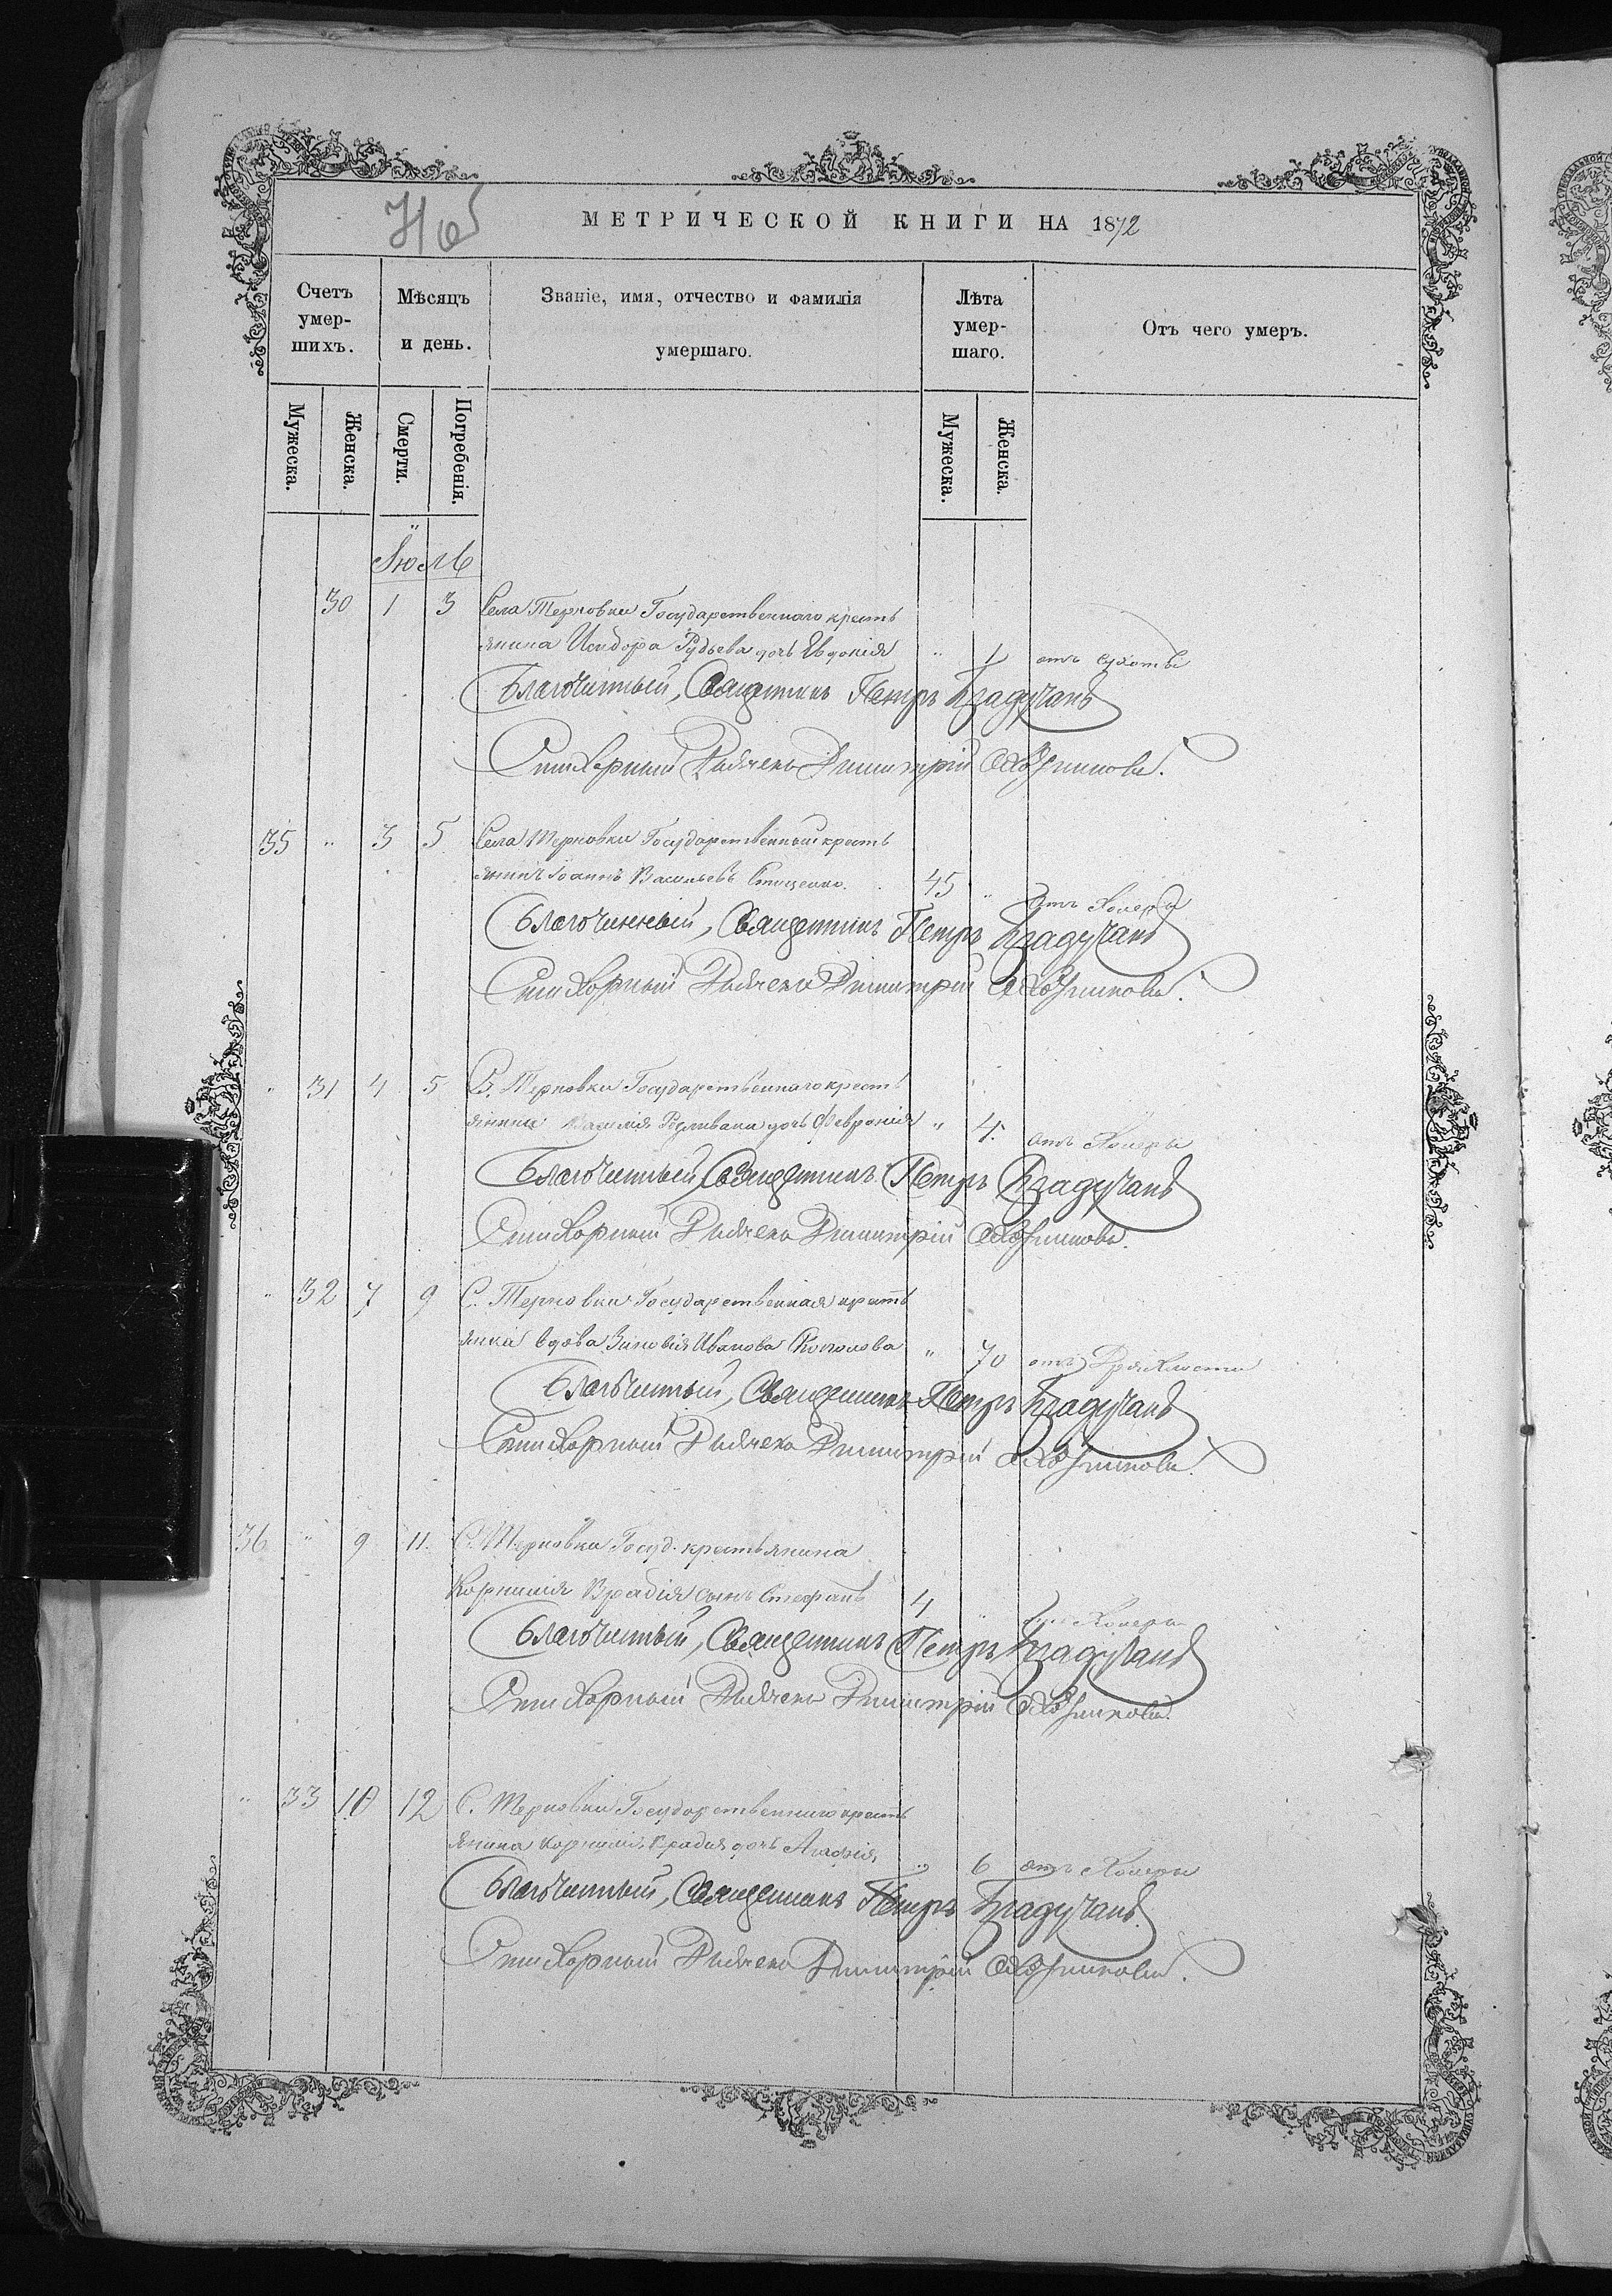 МЕТРИЧЕСКОЙ КНИГИ НА 1872
Счетъ умер-шихъ.
Мѣсяцъ и день.
Званіе, имя, отчество и фамилія умершаго.
Лѣта умер-шаго.
Отъ чего умеръ.
Мужеска. Женска. Смерти. Погребенія. Мужеска. Женска.
Іюль
30 1 3 Села Терновки Государственнаго кресть
янина Исидора дочь Евдокія " 1 отъ сухоты
Благочинный, Священникъ Петръ Брадучанъ
Стихарный Дьячекъ Димитрій
35 " 3 5 Села Терновки Государственный кресть
янинъ Іоаннъ Васильевъ Стащенко. 45 " отъ Холеры
Благочинный, Священникъ Петръ Брадучанъ
Стихарный Дьячекъ Димитрій
" 31 4 5 С. Терновки Государственнаго кресть
янина Василія дочь Февронія " 4. отъ Холеры
Благочинный, Священникъ Петръ Брадучанъ
Стихарный Дьячекъ Димитрій
" 32 7 9 С. Терновки Государственная кресть
янка вдова Зиновія Иванова " 70 отъ Дряхлости
Благочинный, Священникъ Петръ Брадучанъ
Стихарный Дьячекъ Димитрій
36 " 9 11. С. Терновки Госуд. крестьянина
Корнилія Врадія сынъ Стефанъ 4 " отъ Холеры
Благочинный, Священникъ Петръ Брадучанъ
Стихарный Дьячекъ Димитрій
" 33 10 12 С. Терновки Государственнаго кресть
янина Корнилія Врадія дочь Агафія " 6 отъ Холеры
Благочинный, Священникъ Петръ Брадучанъ.
Стихарный Дьячекъ Димитрій